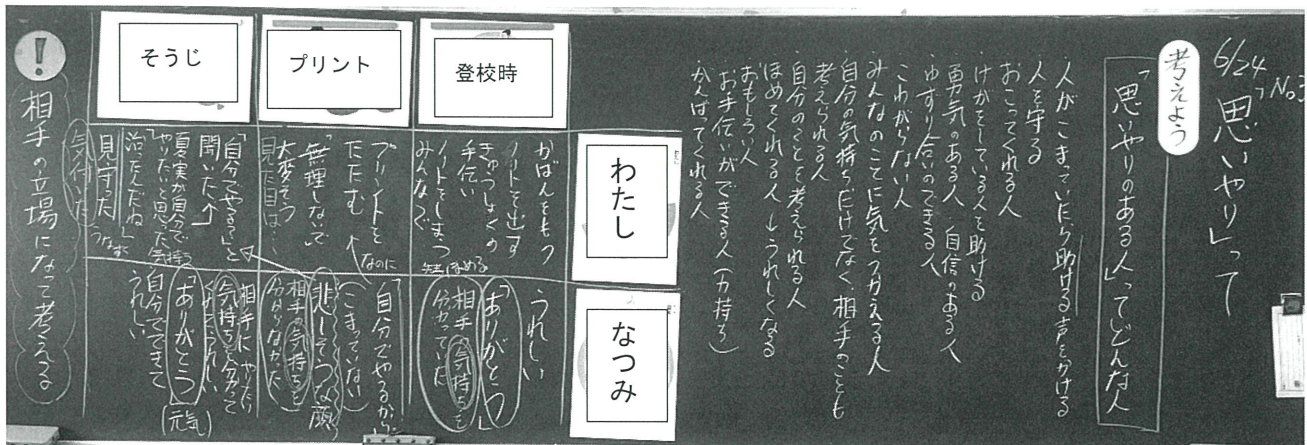 6/24
No3
「思いやり」って
考えよう
「思いやりのある人」ってどんな人
・人がこまっていたら助ける 声をかける
・人を守る
・おこってくれる人
・けがをしている人を助ける
・勇気のある人 自信のある人
・ゆずり合いのできる人
・こわがらない人
・みんなのことに気をつかえる人
・自分の気持ちだけでなく相手のことも
考えられる人
・自分のことを考えられる人
・ほめてくれる人 うれしくなる
・おもしろい人
・お手伝いができる人(力持ち)
・かんばってくれる人
わたし
なつみ
登校時
かばんをもつ
ノートを出す
きゅうしょくの
手伝い
ノートをしまう
みんなで
ほめる
うれしい
「ありがとう」
相手の気持ちを
分かっていた
プリント
プリントを
たたむ
「無理しないで」
大変そう
見た目は…
なのに
「自分でやるから」
(こまっていない)
悲しそうな顔
相手の気持ちを
分からなかった
そうじ
「自分でやる」と
聞いた
夏実が自分で
やりたいと思った気持ち
「治ったんだね」
見守った
うなずく
気付いた
相手に やったり
気持ちを分かって
くれてうれしい
「ありがとう」
自分でできて
うれしい
(元気)
!
相手の立場になって考える